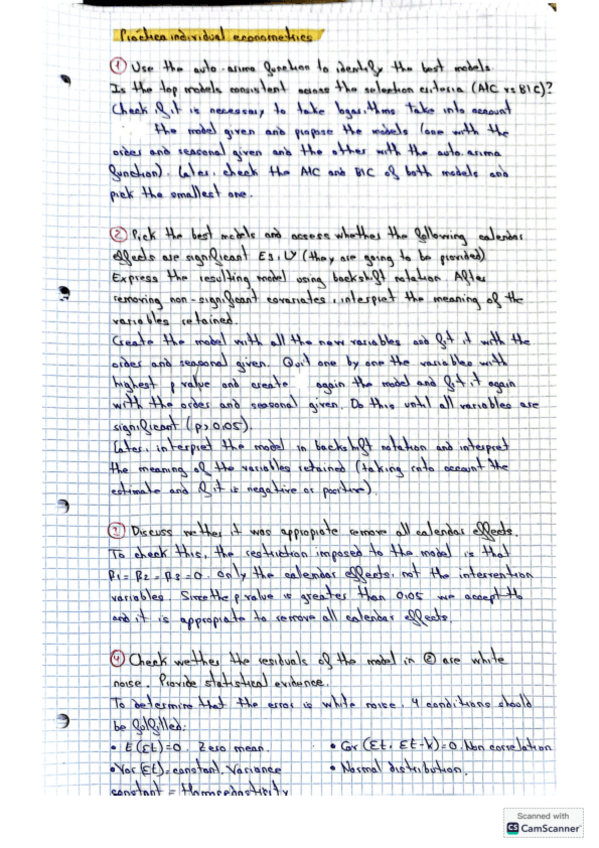 Práctica individual econometrics
① Use the auto.arima function to identify the best models.
Is the top models consistent across the selection criteria (AIC vs BIC)?
Check if it is necessary to take logarithms take into account
the model given and propose the models (one with the
order and seasonal given and the other with the auto.arima
function). Later, check the AIC and BIC of both models and
pick the smallest one.
② Pick the best models and assess whether the following calendar
effects are significant ES, LY (they are going to be provided)
Express the resulting model using backshift notation. After
removing non-significant covariates, interpret the meaning of the
variables retained.
Create the model with all the new variables and fit it with the
order and seasonal given. Quit one by one the variables with
highest p value and create again the model and fit it again
with the order and seasonal given. Do this until all variables are
significant (p>0,05).
Later, interpret the model in backshift notation and interpret
the meaning of the variables retained (taking into account the
estimate and if it is negative or positive).
③ Discuss wether it was appropiate remove all calendar effects.
To check this, the restriction imposed to the model is that
β1 = β2 = β3 = 0. Only the calendar effects, not the intervention
variables. Since the p value is greater than 0,05 we accept Ho
and it is appropiate to remove all calendar effects.
④ Check wether the residuals of the model in ② are white
noise. Provide statistical evidence.
To determine that the error is white noise, 4 conditions should
be fulfilled:
• E(Et)=0. Zero mean. • Cor (Et, Et-k)=0. Non correlation
• Var (Et)= constant. Variance • Normal distribution.
constant = Homocedasticity
Scanned with
CS CamScanner